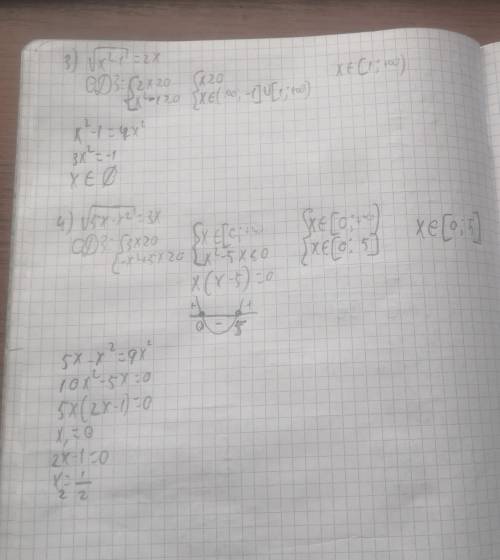 3) √(x²-1) = 2x
ОДЗ: {2x≥0 {x≥0 x∈[1;+∞)
{x²-1≥0 {x∈(∞;-1]∪[1;+∞)
x²-1=4x²
3x²=-1
x∈∅
4) √(5x-x²)=3x
ОДЗ: {3x≥0 {x∈[0;+∞) {x∈[0;+∞) x∈[0;5]
{-x²+5x≥0 {x²-5x≤0 {x∈[0;5]
x(x-5)=0
+ - +
0 5
5x-x²=9x²
10x²-5x=0
5x(2x-1)=0
x₁=0
2x-1=0
x₂=1/2